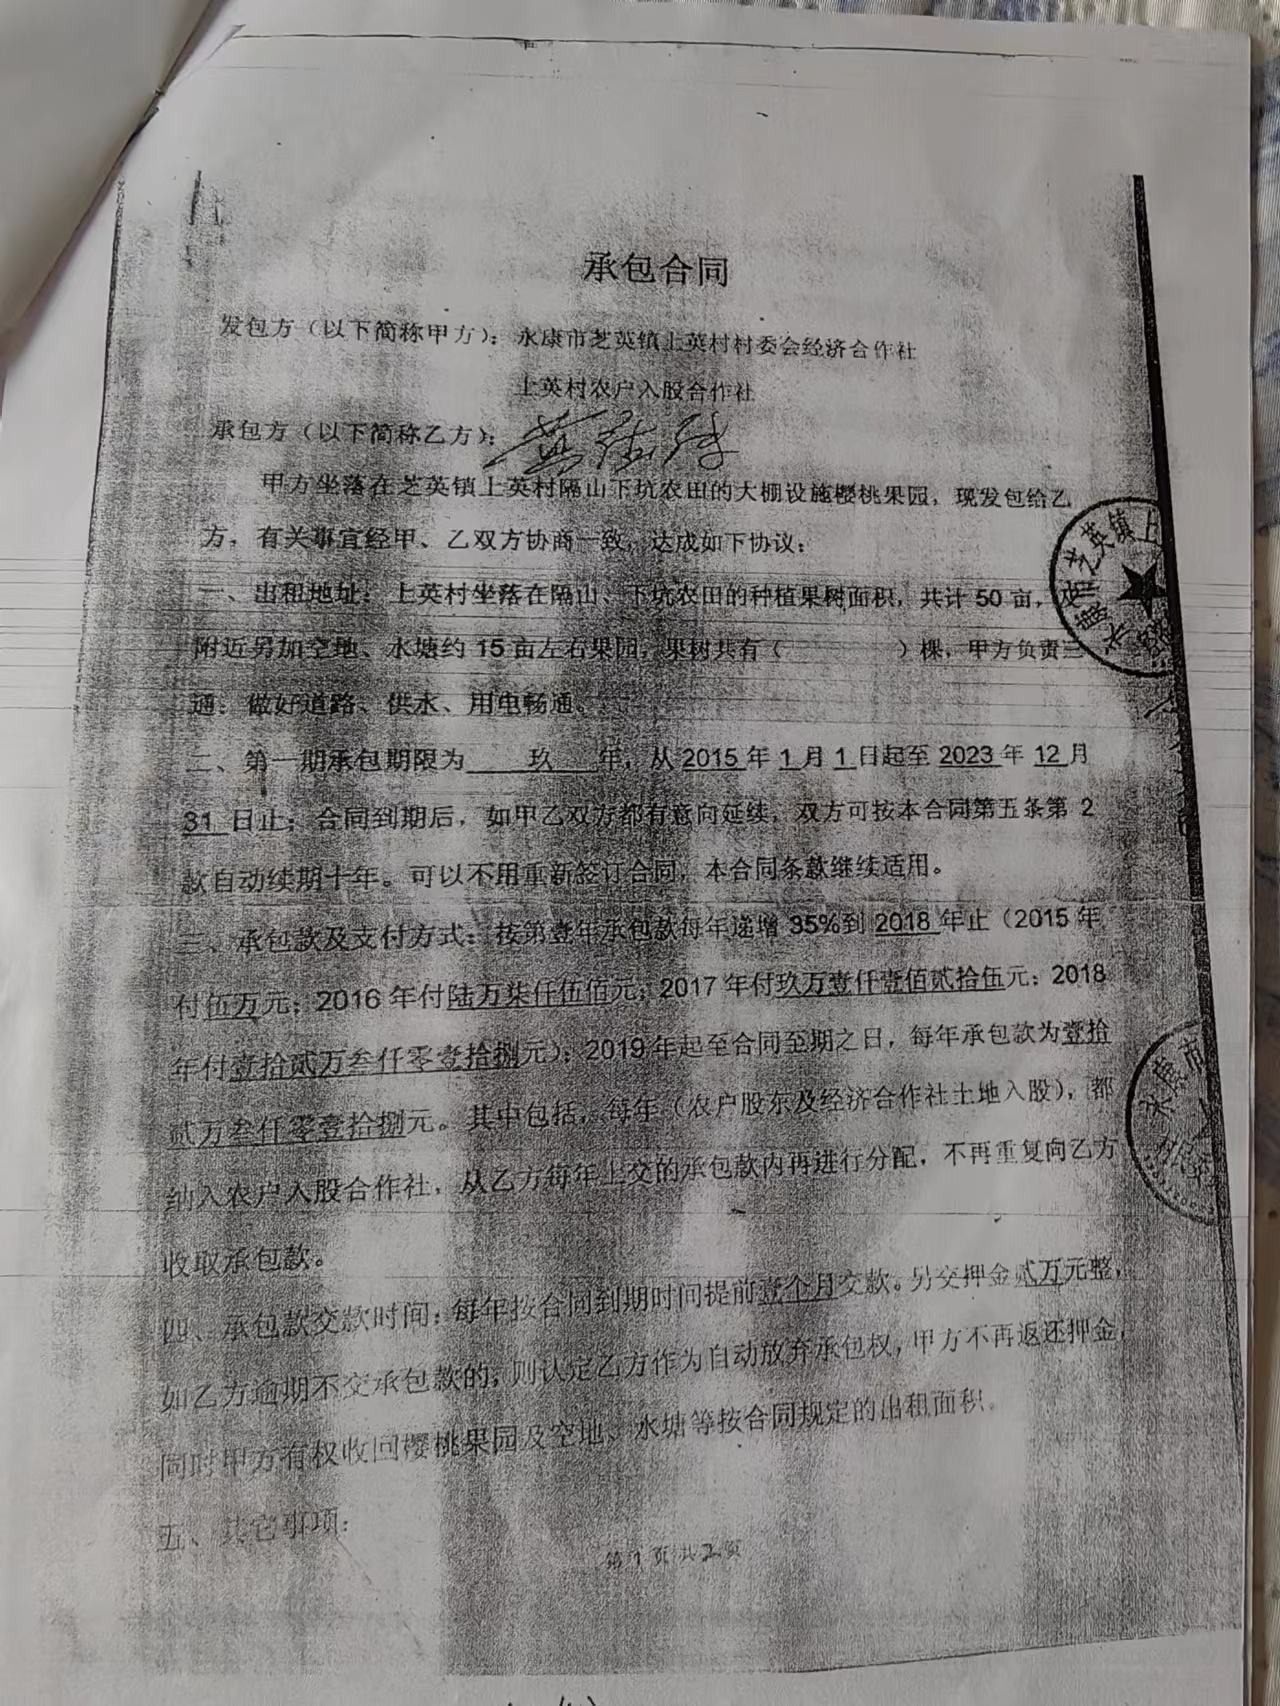 承包合同
发包方（以下简称甲方）：永康市芝英镇上英村村委会经济合作社
上英村农户入股合作社
承包方（以下简称乙方）：
甲方坐落在芝英镇上英村隔山下坑农田的大棚设施樱桃果园，现发包给乙
方，有关事宜经甲、乙双方协商一致，达成如下协议：
一、出租地址：上英村坐落在隔山、下坑农田的种植果树面积，共计50亩，及
附近另加空地、水塘约15亩左右果园，果树共有（ ）棵，甲方负责三
通：做好道路、供水、用电畅通。
二、第一期承包期限为 玖 年，从2015年1月1日起至2023年12月
31日止；合同到期后，如甲乙双方都有意向延续，双方可按本合同第五条第2
款自动续期十年。可以不用重新签订合同，本合同条款继续适用。
三、承包款及支付方式：按第壹年承包款每年递增35%到2018年止（2015年
付伍万元；2016年付陆万柒仟伍佰元；2017年付玖万壹仟壹佰贰拾伍元；2018
年付壹拾贰万叁仟零壹拾捌元）；2019年起至合同至期之日，每年承包款为壹拾
贰万叁仟零壹拾捌元。其中包括，每年（农户股东及经济合作社土地入股），都
纳入农户入股合作社，从乙方每年上交的承包款内再进行分配，不再重复向乙方
收取承包款。
四、承包款交款时间：每年按合同到期时间提前壹个月交款。另交押金贰万元整，
如乙方逾期不交承包款的，则认定乙方作为自动放弃承包权，甲方不再返还押金，
同时甲方有权收回樱桃果园及空地、水塘等按合同规定的出租面积。
五、其它事项：
第1页共2页
芝英镇上
永康市